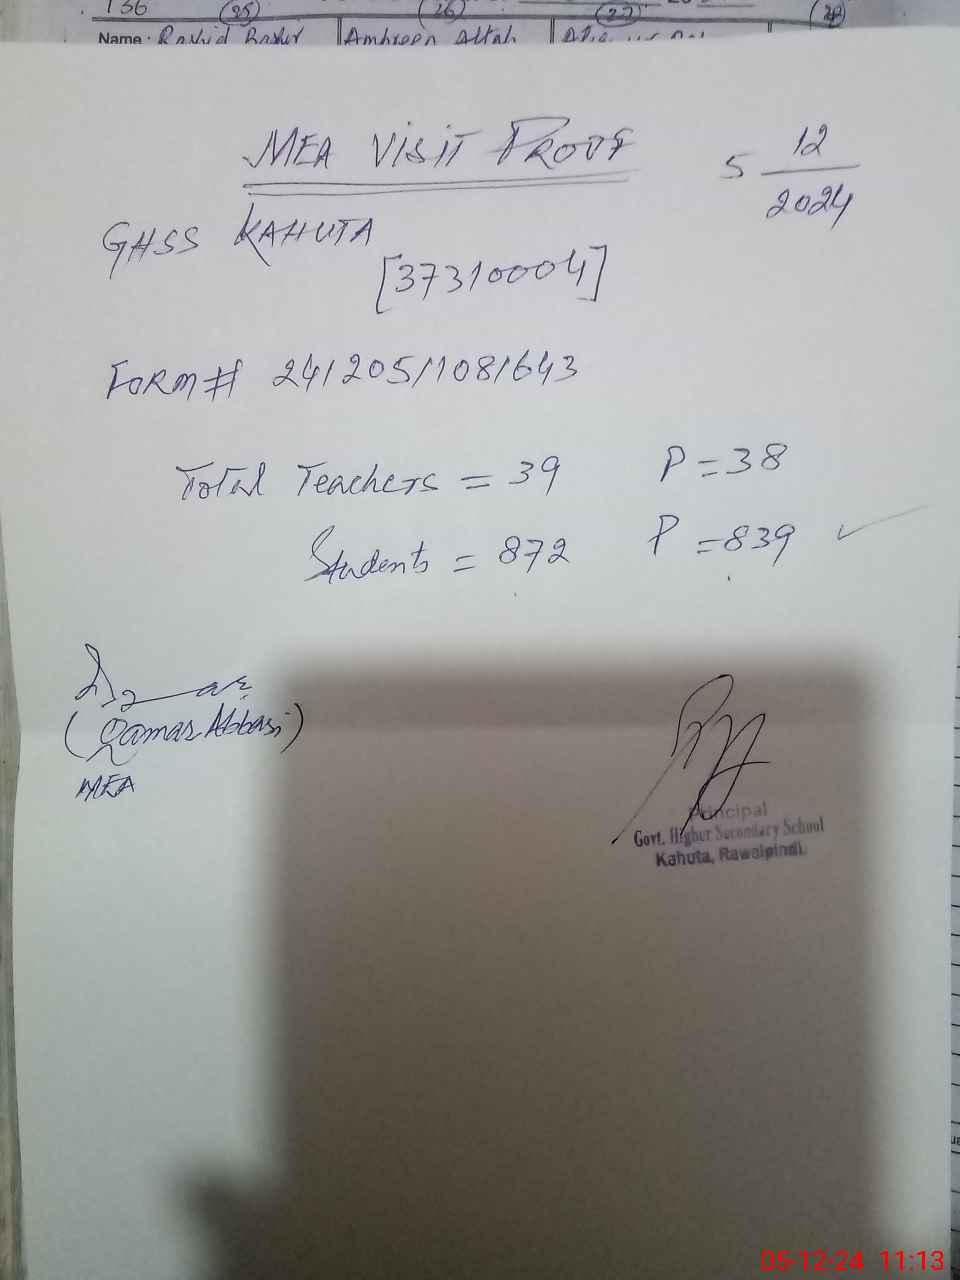 136 (25) (26) (27) (28)
Name : Rashid Bashir Ambreen Altaf
MEA VISIT PROOF
5 12/2024
GHSS KAHUTA
[37310004]
FORM# 241205/1081643
Total Teachers = 39 P = 38
Students = 872 P = 839 ✓
(Qamar Abbasi)
MEA
Principal
Govt. Higher Secondary School
Kahuta, Rawalpindi.
05-12-24 11:13